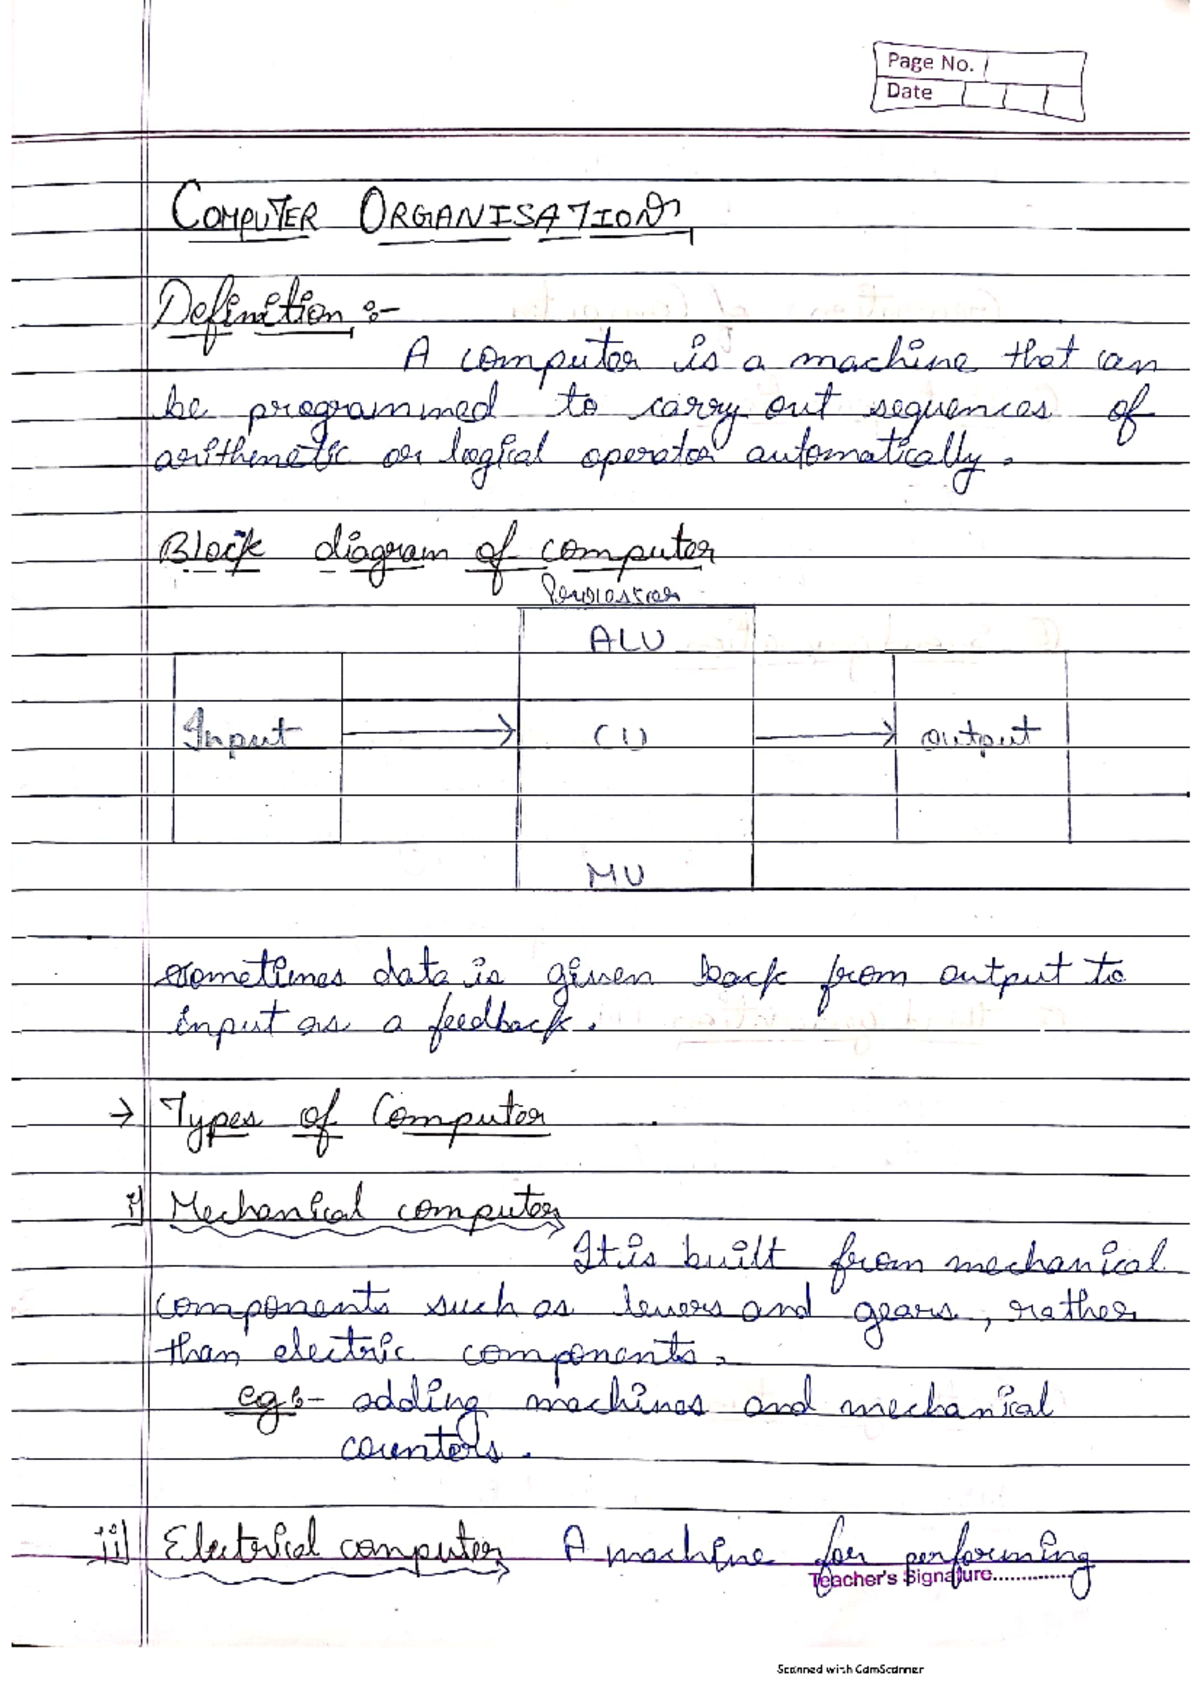 Page No.
Date
COMPUTER ORGANISATION
Definition :-
A computer is a machine that can
be programmed to carry out sequences of
arithmetic or logical operator automatically.
Block diagram of computer
Processor
ALU
Input
CU
output
MU
sometimes data is given back from output to
input as a feedback.
→ Types of Computer
i) Mechanical computer
It is built from mechanical
components such as levers and gears, rather
than electric components.
eg:- adding machines and mechanical
counters.
ii) Electrical computer A machine for performing
Teacher's Signature...............
Scanned with CamScanner